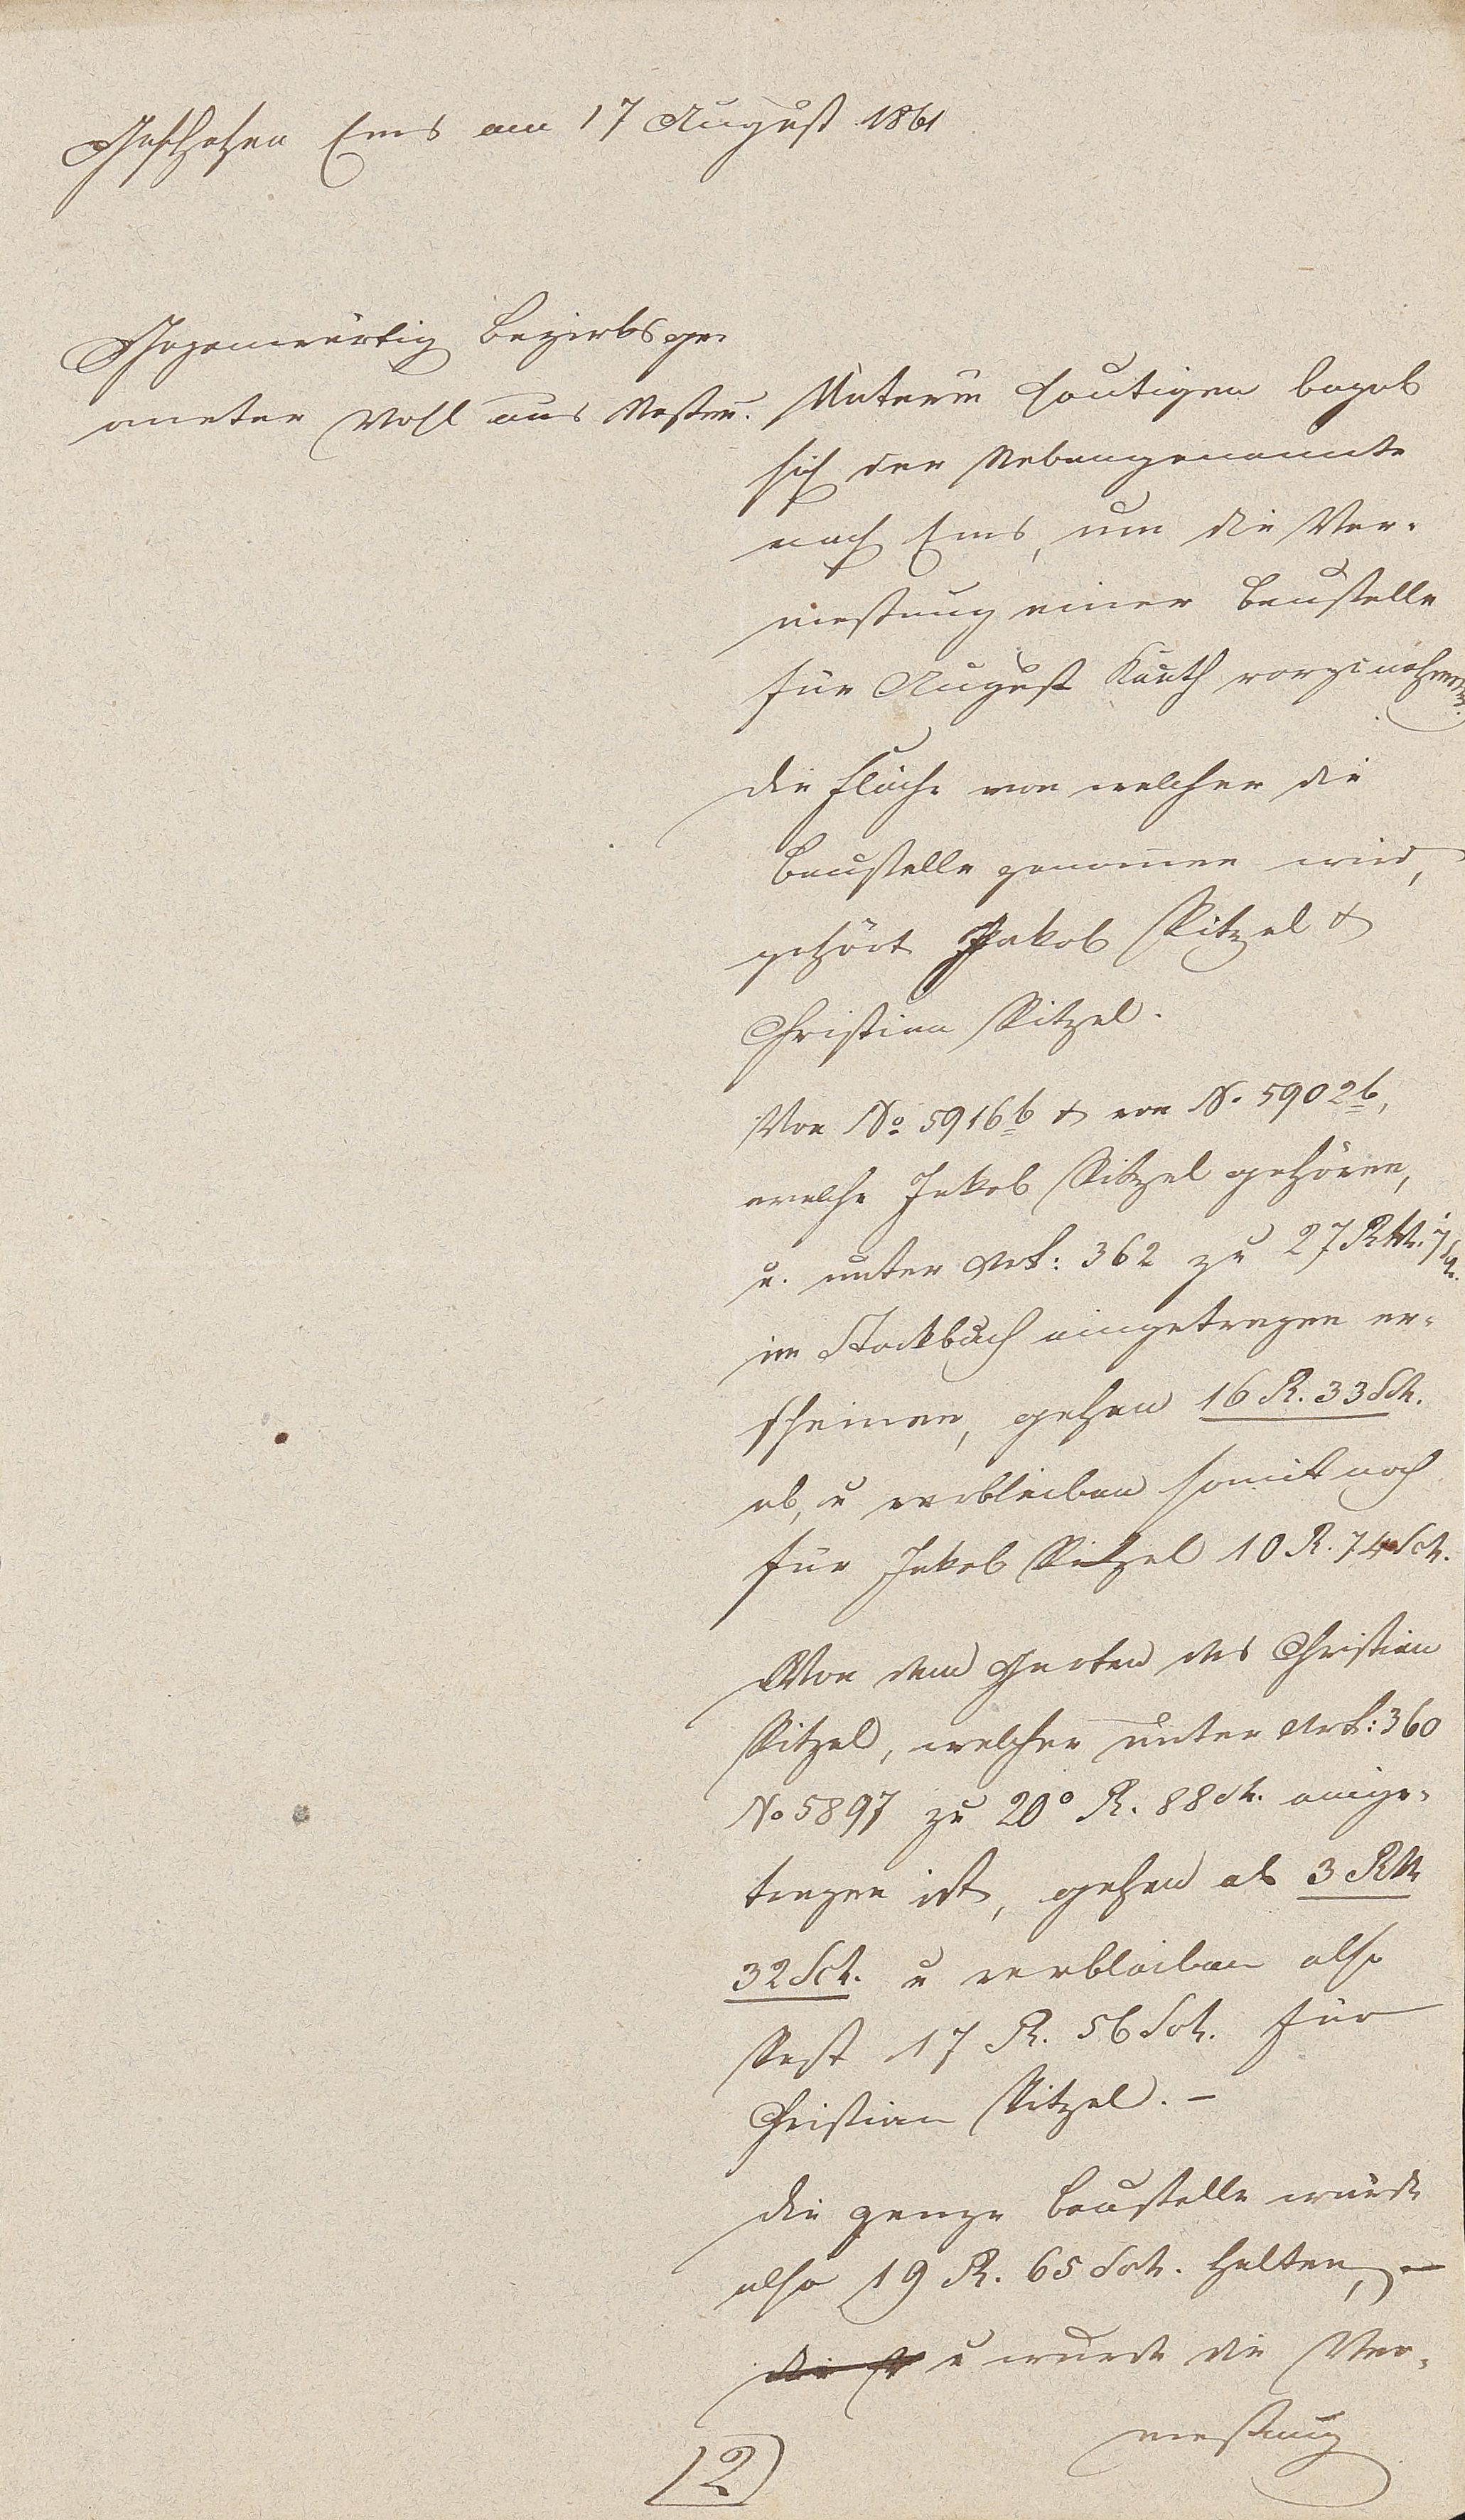 Geschehen Ems am 17 August 1861
Gegenwärtig Bezirksge-
ometer Vohl aus Nassau.
Unterm heutigen begab
sich der Nebengenannte
nach Ems, um die Ver-
messung einer Baustelle
für August Kauth vorzunehmen.
Die Fläche von welcher die
Baustelle genommen wird,
gehört Jakob Spitzel &
Christian Spitzel.
Von No 5916b & von N. 5902b,
welche Jakob Spitzel gehören,
u. unter Art: 362 zu 27 Rth. 7 Sch.
im Stockbuch eingetragen er-
scheinen, gehen 16 R. 33 Sch.
ab, u verbleiben somit noch
für Jakob Spitzel 10 R. 74 Sch.
Von dem Garten des Christian
Spitzel, welcher unter Art: 360
No 5897 zu 20° R. 88 Sch. einge-
tragen ist, gehen ab 3 Rth
32 Sch. u verbleiben also
Rest 17 R. 56 Sch. für
Christian Spitzel. –
Die ganze Baustelle würde
also 19 R. 65 Sch. halten, –
u wurde die Ver-
messung
2)